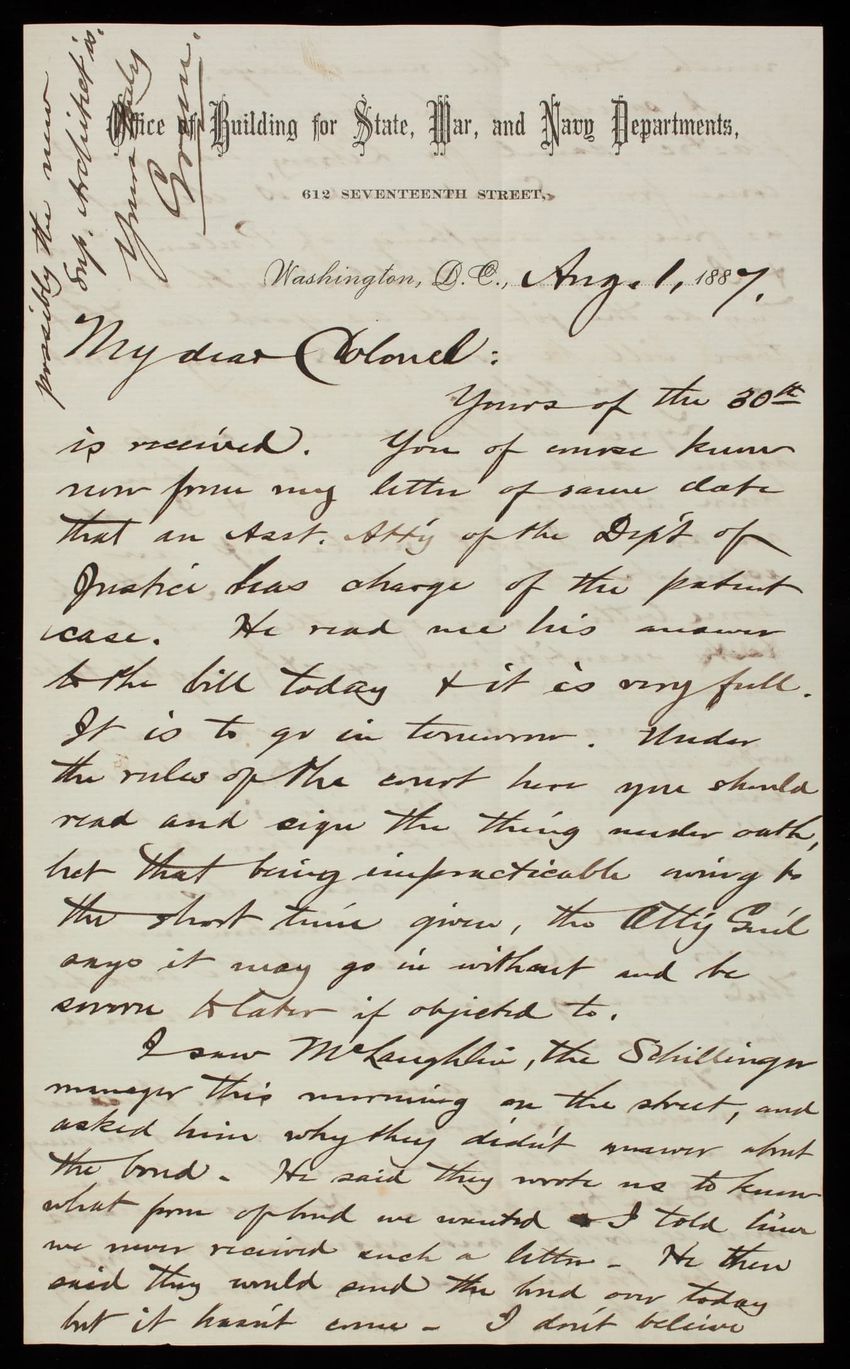 Office of Building for State, War, and Navy Departments,
612 SEVENTEENTH STREET,
Washington, D.C., Aug. 1, 1887.
My dear Colonel:
Yours of the 30th
is received. You of course know
now from my letter of same date
that an Asst. Att'y of the Dep't of
Justice has charge of the patent
case. He read me his answer
to the bill today & it is very full.
It is to go in tomorrow. Under
the rules of the court here you should
read and sign the thing under oath,
but that being impracticable owing to
the short time given, the Att'y Gen'l
says it may go in without and be
sworn to later if objected to.
I saw McLaughlin, the Schillinger
manager this morning on the street, and
asked him why they didn't answer about
the bond. He said they wrote us to know
what form of bond we wanted & I told him
we never received such a letter - He then
said they would send the bond over today
but it hasn't come - I don't believe
possibly the new
Sup. Architect is.
Yours truly
Green.